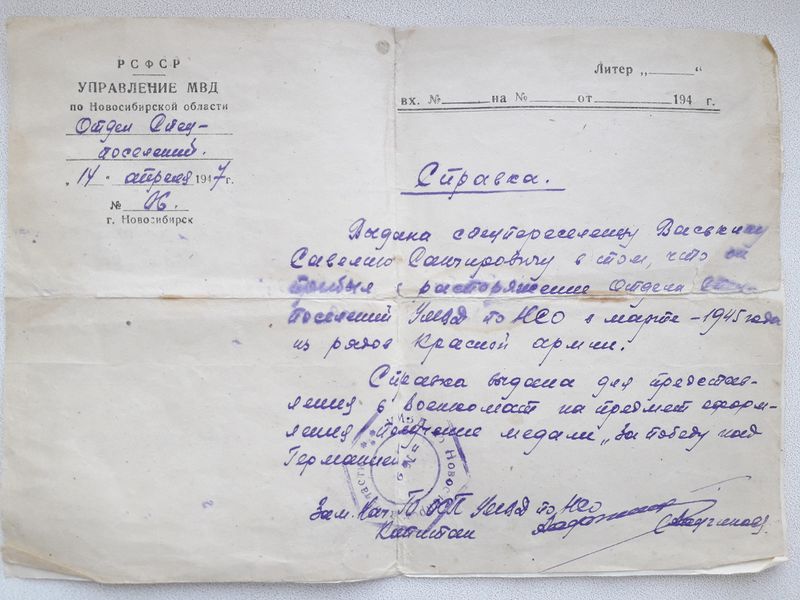 РСФСР
УПРАВЛЕНИЕ МВД
по Новосибирской области
Отдел Спец-
поселений.
„14“ апреля 1947г.
№
г. Новосибирск
Литер „______“
вх. №______ на №______ от______ 194 г.
Справка.
Выдана спецпереселенцу Васькину
Савелию Санчировичу в том, что он
прибыл в распоряжение Отдела Спец
поселений УМВД по НСО в марте – 1945 года
из рядов Красной армии.
Справка выдана для представ-
ления в Военкомат на предмет оформ-
ления получение медали „За победу над
Германией
Зам. Нач. ОСП УМВД по НСО
Капитан